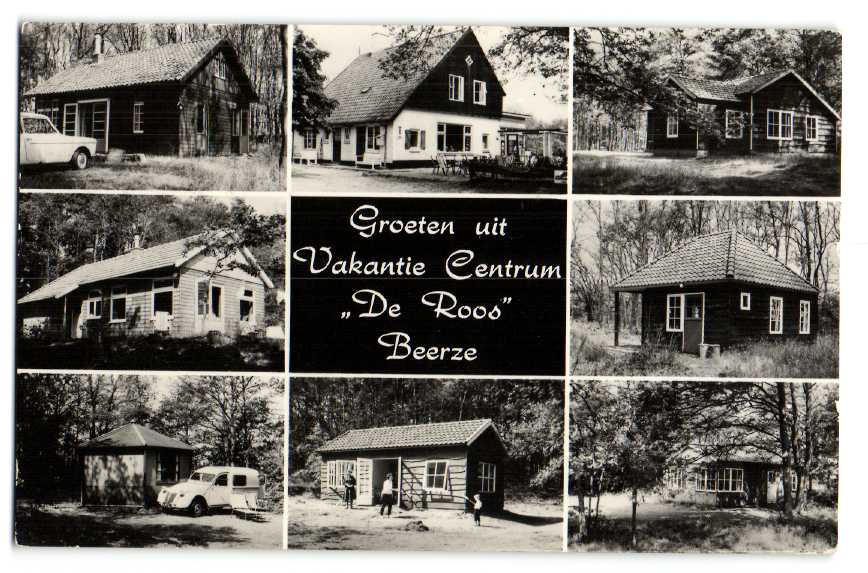 Groeten uit
Vakantie Centrum
„De Roos”
Beerze